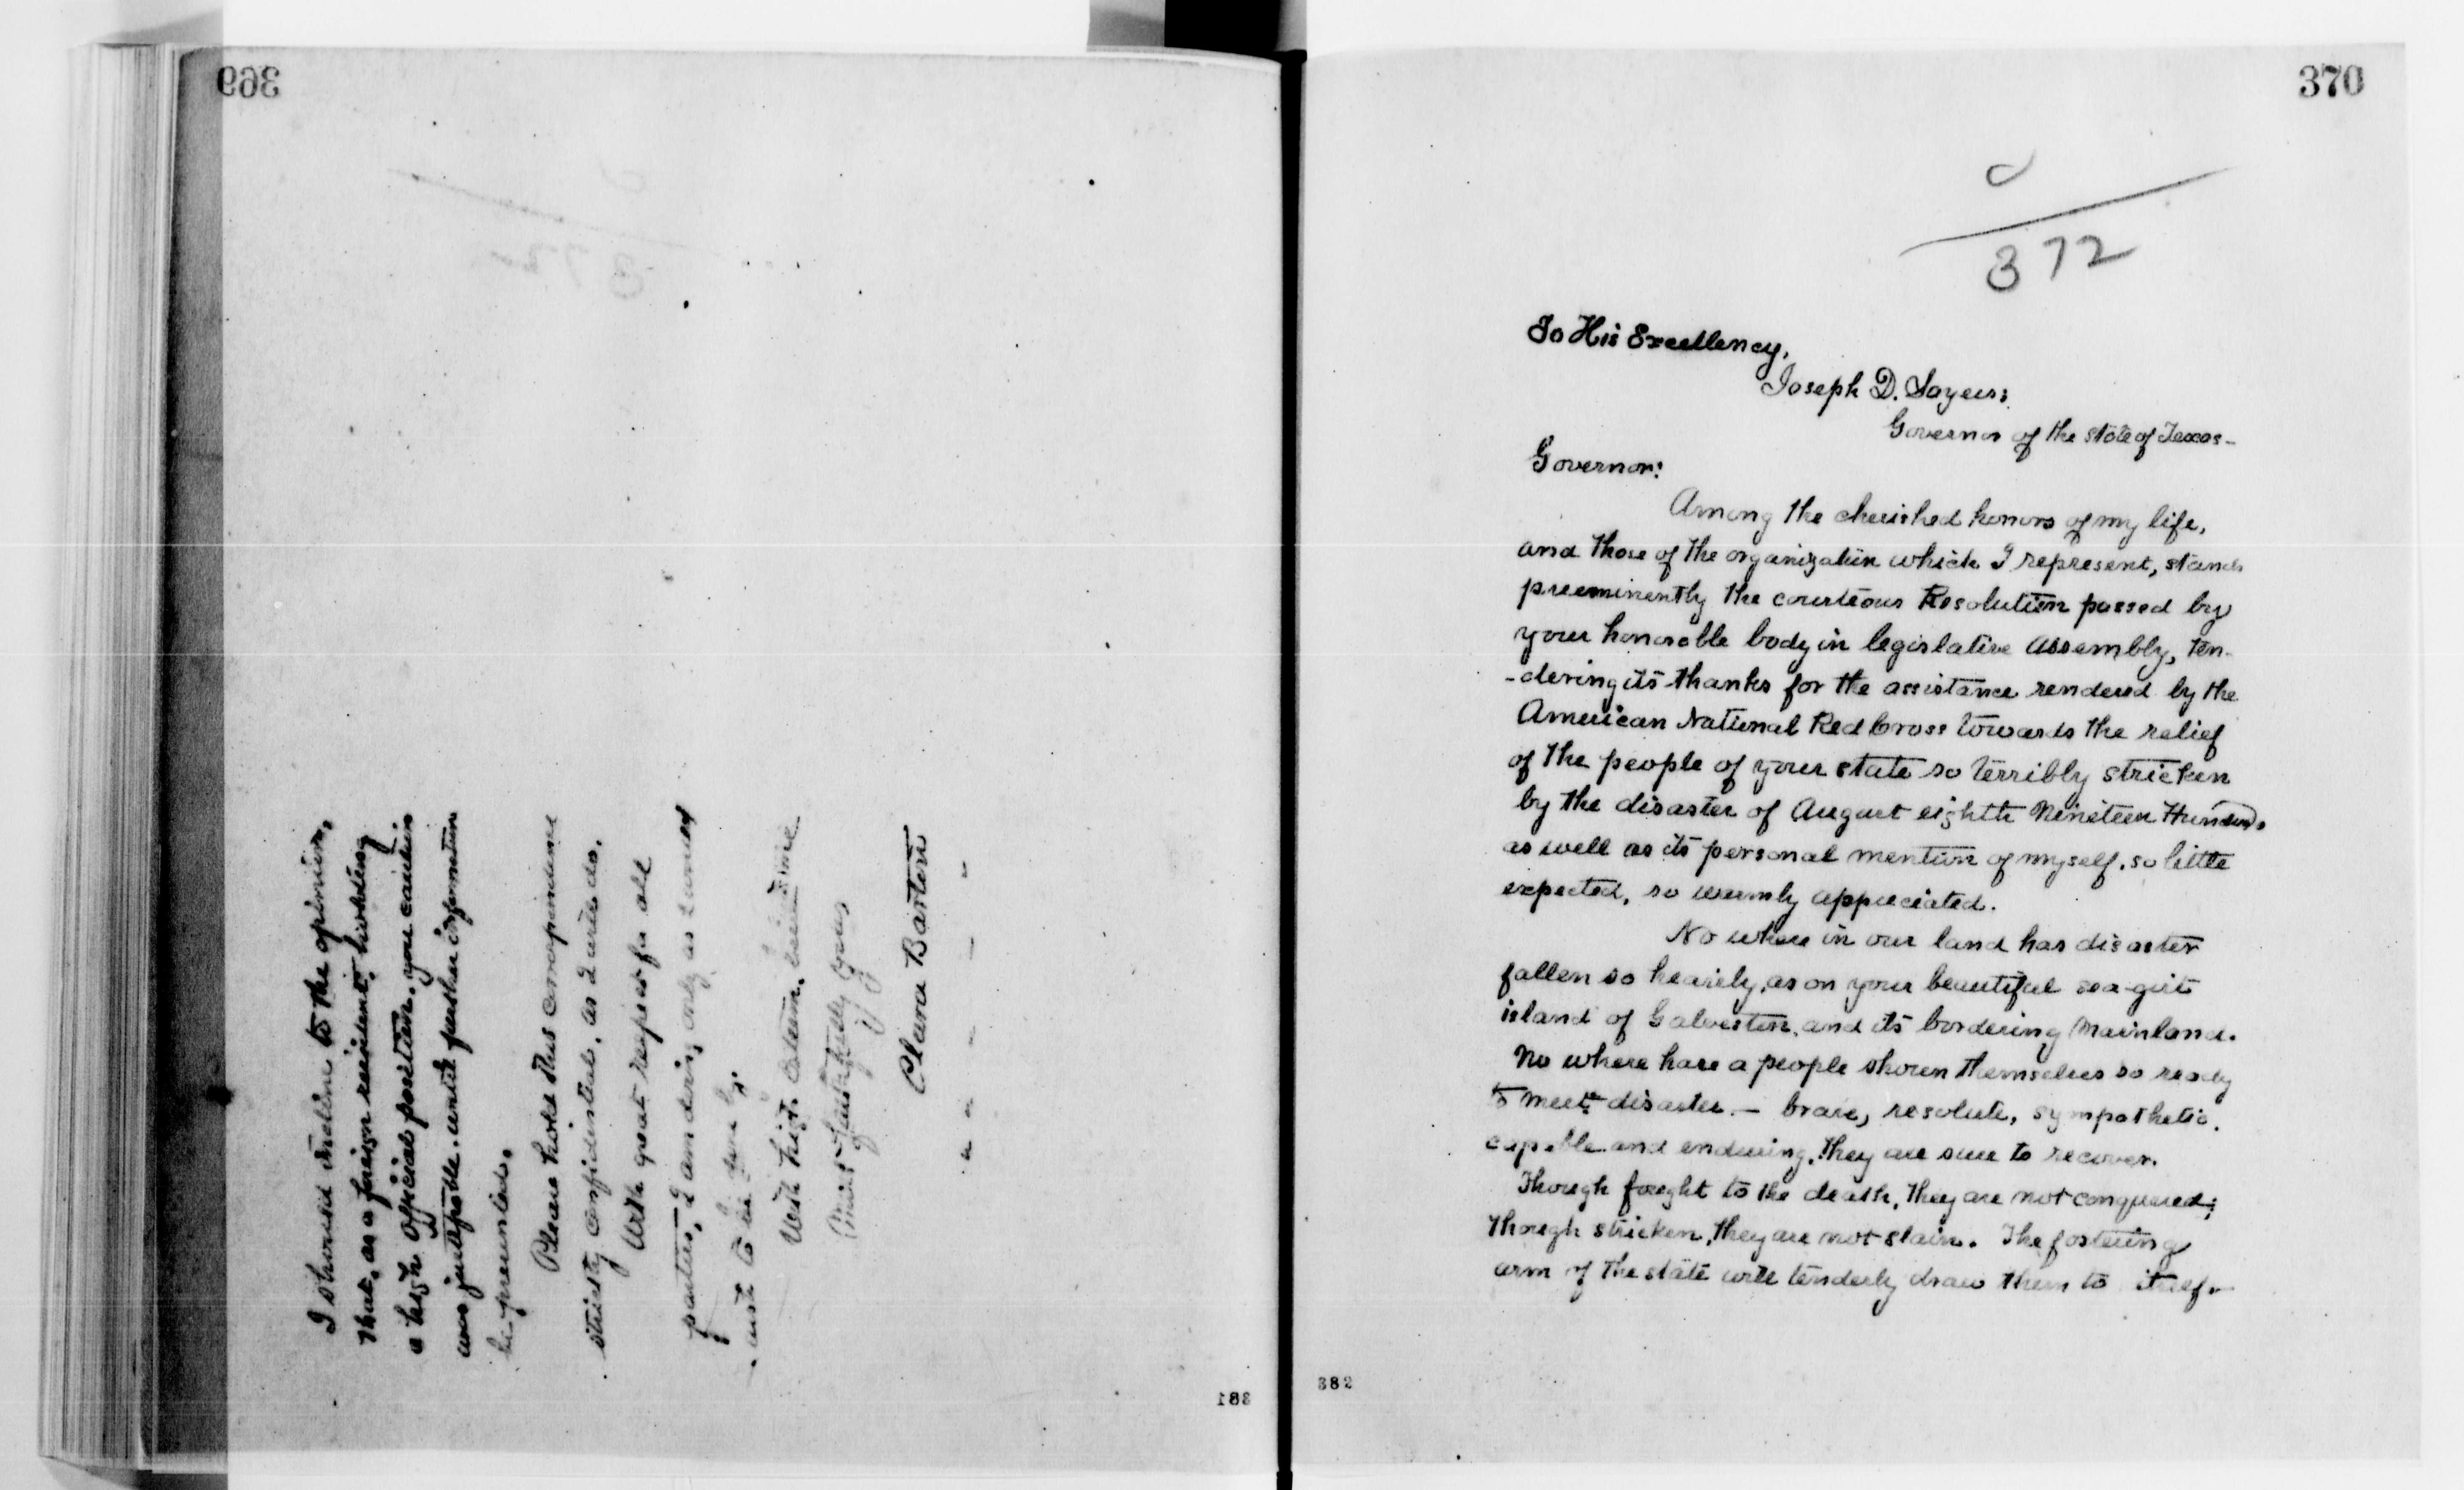 369
I should incline to the opinion,
that, as a foreign resident, holding
a high official position, you
was justifiable, until further information
be presented.
Please hold this correspondence
strictly confidential, as I will do.
With great respect for all
parties, I am doing only as I
With high esteem, believe me
Most faithfully yours
Clara Barton
381
370
C
372
To His Excellency,
Joseph D. Sayers;
Governor of the state of Texas-
Governor:
Among the cherished honors of my life,
and those of the organization which I represent, stands
preeminently the courteous Resolution passed by
your honorable body in legislative Assembly, ten-
-dering its thanks for the assistance rendered by the
American National Red Cross towards the relief
of the people of your state so terribly stricken
by the disaster of August eighth Nineteen Hundred,
as well as its personal mention of myself, so little
expected, so warmly appreciated.
No where in our land has disaster
fallen so heavily, as on your beautiful sea-girt
island of Galveston, and its bordering Mainland.
No where have a people shown themselves so ready
to meet disaster. - brave, resolute, sympathetic,
capable and enduring, they are sure to recover.
Though fought to the death, they are not conquered;
though stricken, they are not slain. The fostering
arm of the state will tenderly draw them to itself-
382